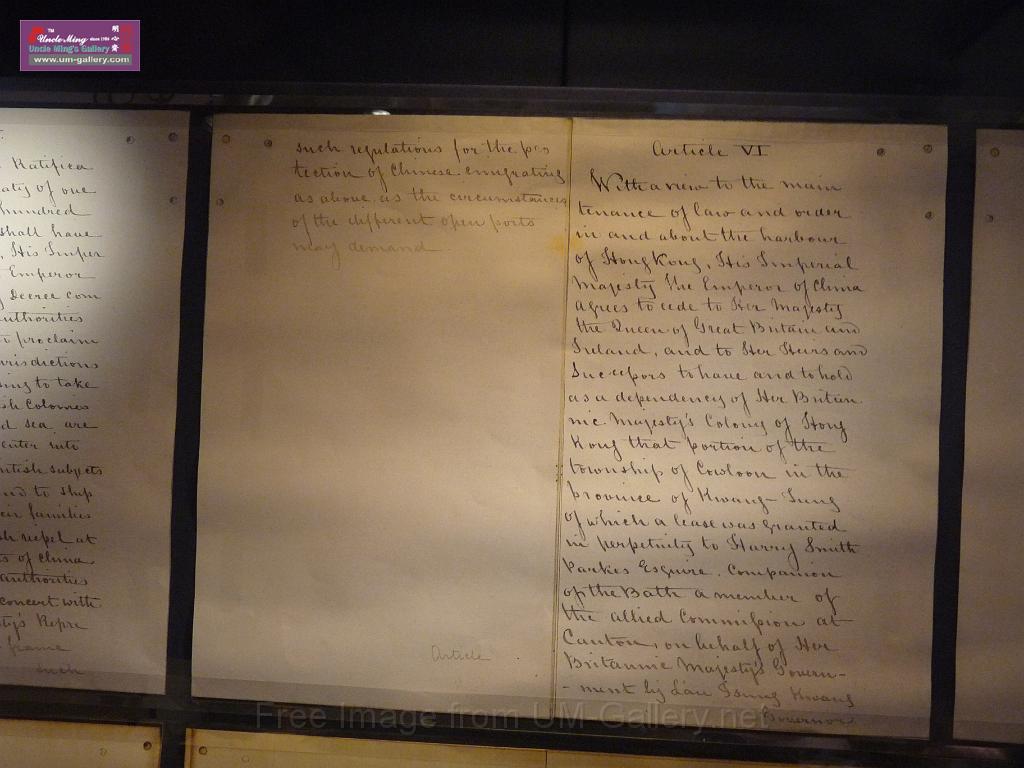 TM
Uncle Ming since 1986
Uncle Ming's Gallery
www.um-gallery.com
Ratifica
aty of one
hundred
shall have
, His Imper
Emperor
Decree com
authorities
to proclaim
urisdictions
ing to take
sh Colonies
d sea, are
enter into
ritish subjects
nd to ship
eir families
sh vessel at
ts of China
authorities
concert with
sty's Repre
frame
such
such regulations for the pro
tection of Chinese emigrating
as above as the circumstances
of the different open ports
may demand
Article
Article VI
With a view to the main
tenance of law and order
in and about the harbour
of Hong Kong, His Imperial
Majesty the Emperor of China
agrees to cede to Her Majesty
the Queen of Great Britain and
Ireland, and to Her Heirs and
Successors to have and to hold
as a dependency of Her Britan
nic Majesty's Colony of Hong
Kong that portion of the
township of Cowloon in the
province of Kwang-Tung
of which a lease was granted
in perpetuity to Harry Smith
Parkes Esquire, Companion
of the Bath a member of
the allied Commission at
Canton, on behalf of Her
Britannic Majesty's Govern-
- ment by Lau Tsung Kwang
Governor
Free Image from UM Gallery.net